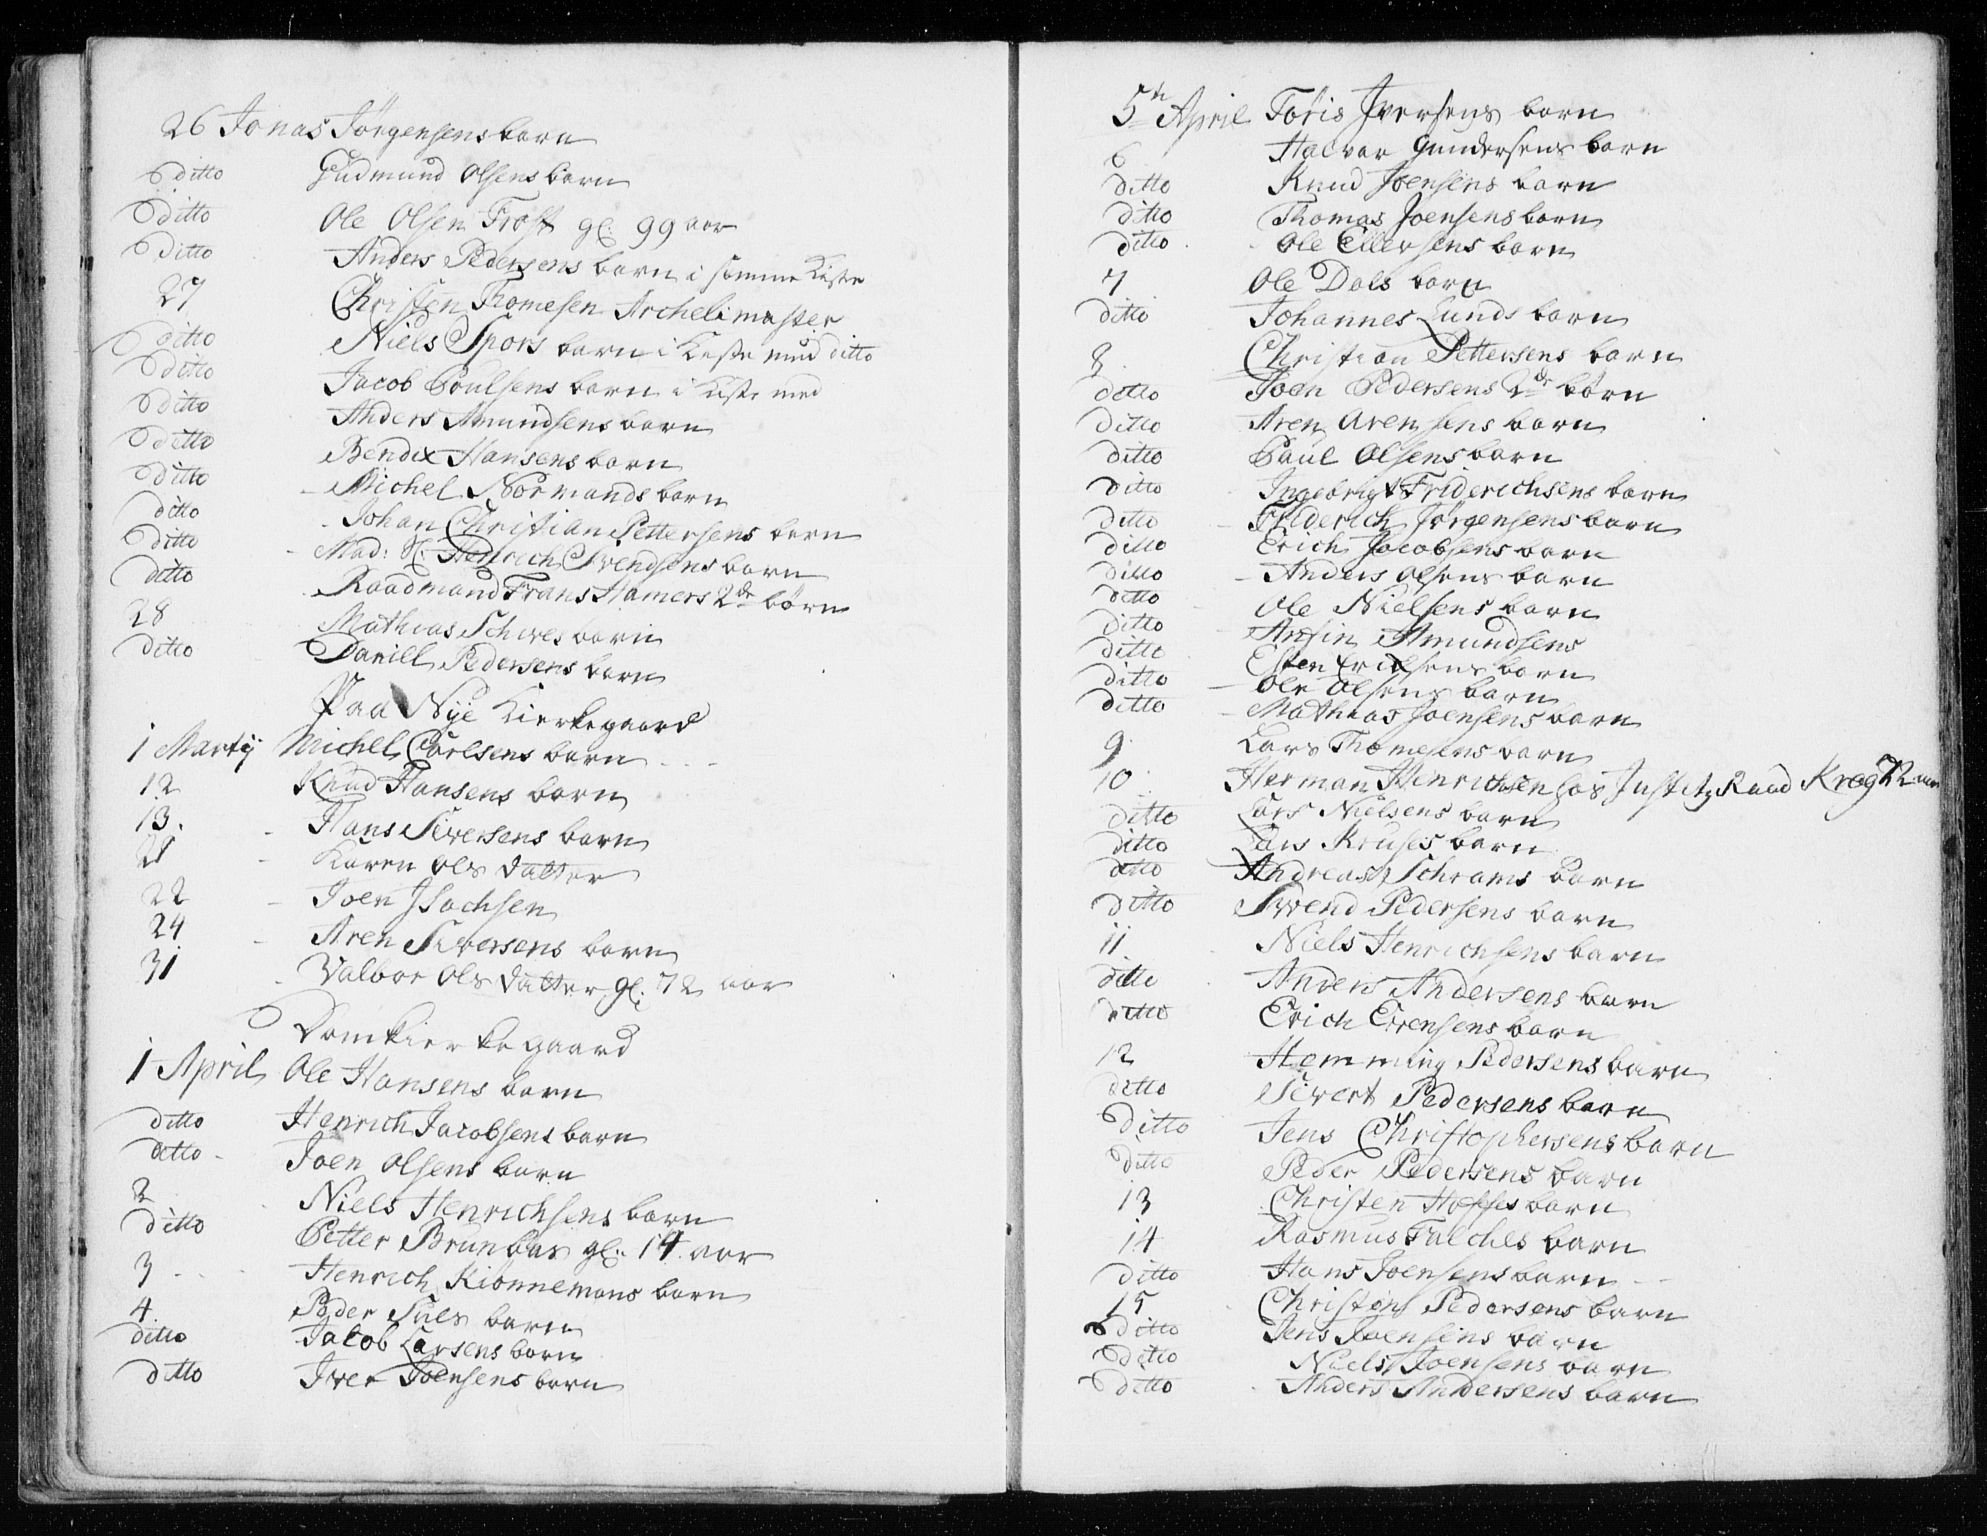 26 Jonas Jörgensens barn
ditto Gudmund Olsens barn
ditto Ole Olsen Frost gl: 99 aar
ditto Anders Pedersens barn i samme Kiste
27 Christen Thomesen Archelimester
ditto Niels Spors barn i Kiste med ditto
ditto Jacob Poulsens barn i Kiste med
ditto Anders Amundsens barn
ditto Bendix Hansens barn
ditto Michel Normands barn
ditto Johan Christian Pettersens barn
ditto Mad: Sl: Henrich Svendsens barn
ditto Raadmand Frans Hamers 2de börn
28 Mathias Schives barn
ditto Daniell Pedersens barn
Paa Nye Kierkegaard
1 Martij Michel Carlsens barn
12 Knud Hansens barn
13. Hans Siversens barn
21 Karen Ols datter
22 Joen Isachsen
24 Aren Siversens barn
31 Valbor Ols datter gl: 72 aar
Domkierkegaard
1 April Ole Hansens barn
ditto Henrich Jacobsens barn
ditto Joen Olsens barn
2 Niels Henrichsens barn
ditto Petter Brun gl: 14 aar
3 Henrich Kionnemans barn
4. Peder Suls barn
ditto Jacob Larsens barn
ditto Iver Joensens barn
5te April Foris Iversens barn
6 Halvar Gundersens barn
ditto Knud Joensens barn
ditto Thomas Joensens barn
ditto Ole Ellersens barn
7 Ole Dals barn
ditto Johannes Lunds barn
8 Christian Pettersens barn
ditto Joen Pedersens 2de börn
ditto Aren Arensens barn
ditto Paul Olsens barn
ditto Ingebrigt Friderichsens barn
ditto Friderich Jörgensens barn
ditto Erich Jacobsens barn
ditto Anders Olsens barn
ditto Ole Nielsens barn
ditto Arsin Amundsens
ditto Esten Ericksens barn
ditto Ole Olsens barn
ditto Mathias Joensens barn
9 Lars Thomesens barn
10 Herman Henrichsen hos Justitz Raad Krag 72 aar
ditto Lars Nielsens barn
ditto Lars Kruses barn
ditto Andreas Schrams barn
ditto Svend Pedersens barn
11. Niels Henrichsens barn
ditto Anders Andersens barn
ditto Erich Evensens barn
12 Hemming Pedersens barn
ditto Sivert Pedersens barn
ditto Jens Christophersens barn
ditto Peder Pedersens barn
13 Christen Hoffs barn
14 Rasmus Falches barn
ditto Hans Joensens barn
15 Christen Pedersens barn
ditto Jens Joensens barn
ditto Niels Joensens barn
ditto Anders Andersens barn